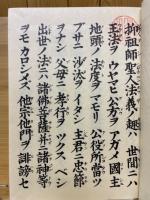 抑祖師聖人法義ノ趣ハ世間ニハ
王法ヲウヤマヒ公方ヲアガメ國主
地頭ノ法度ヲマモリ公役所當ツ
ブサニ沙汰ヲイタシ主君ニ忠節
ヲナシ父母ニ孝行ヲツクスベシ
出世ノ法ニハ諸佛菩薩并ニ諸神等
ヲモカロシメズ他宗他門ヲ誹謗セ